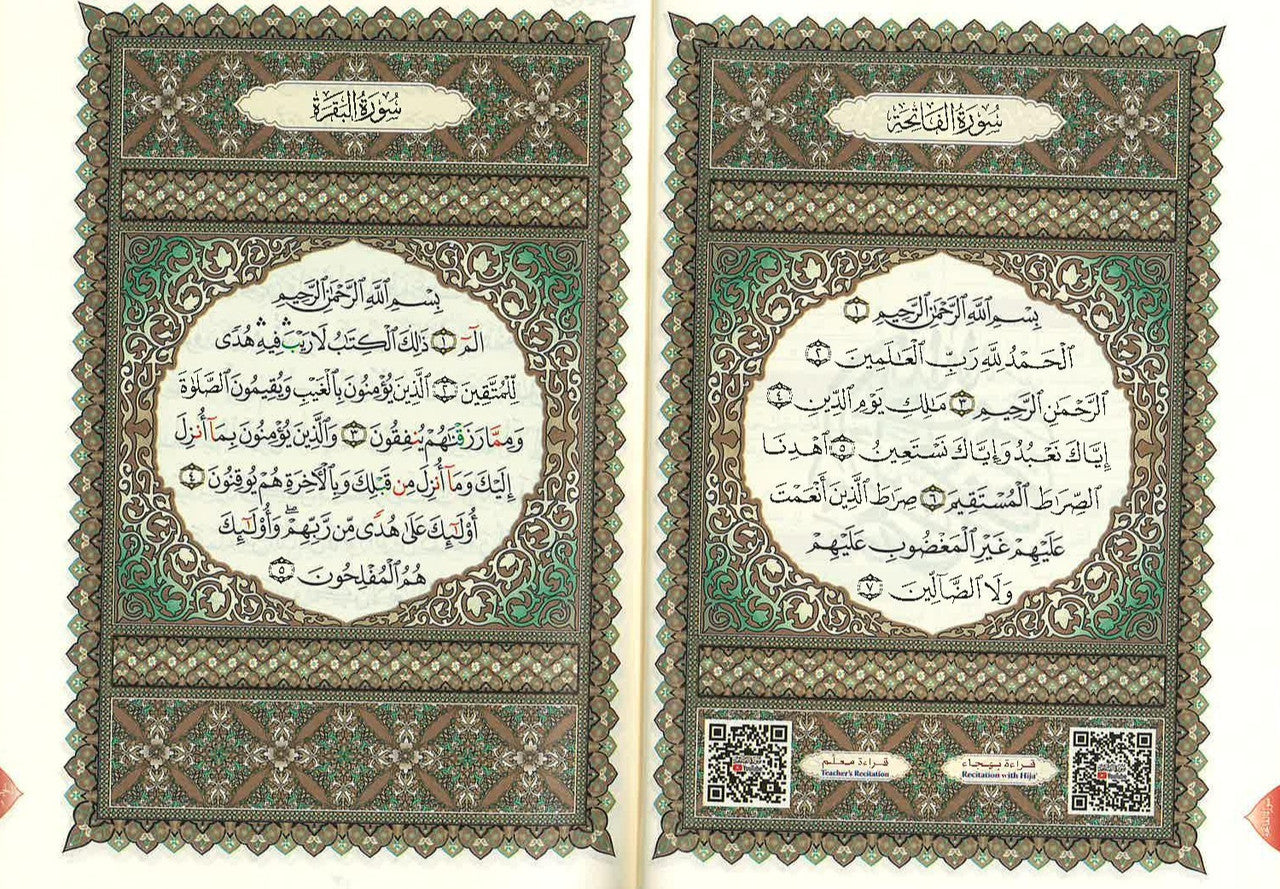 سُورَةُ الفَاتِحَةِ
بِسْمِ ٱللَّهِ ٱلرَّحْمَٰنِ ٱلرَّحِيمِ ١
ٱلْحَمْدُ لِلَّهِ رَبِّ ٱلْعَٰلَمِينَ ٢
ٱلرَّحْمَٰنِ ٱلرَّحِيمِ ٣ مَٰلِكِ يَوْمِ ٱلدِّينِ ٤
إِيَّاكَ نَعْبُدُ وَإِيَّاكَ نَسْتَعِينُ ٥ ٱهْدِنَا
ٱلصِّرَٰطَ ٱلْمُسْتَقِيمَ ٦ صِرَٰطَ ٱلَّذِينَ أَنْعَمْتَ
عَلَيْهِمْ غَيْرِ ٱلْمَغْضُوبِ عَلَيْهِمْ
وَلَا ٱلضَّآلِّينَ ٧
قراءة بهجاء
Recitation with Hija'
قراءة معلم
Teacher's Recitation
سُورَةُ البَقَرَةِ
بِسْمِ ٱللَّهِ ٱلرَّحْمَٰنِ ٱلرَّحِيمِ
الٓمٓ ١ ذَٰلِكَ ٱلْكِتَٰبُ لَا رَيْبَ ۛ فِيهِ ۛ هُدًى
لِّلْمُتَّقِينَ ٢ ٱلَّذِينَ يُؤْمِنُونَ بِٱلْغَيْبِ وَيُقِيمُونَ ٱلصَّلَوٰةَ
وَمِمَّا رَزَقْنَٰهُمْ يُنفِقُونَ ٣ وَٱلَّذِينَ يُؤْمِنُونَ بِمَآ أُنزِلَ
إِلَيْكَ وَمَآ أُنزِلَ مِن قَبْلِكَ وَبِٱلْأَخِرَةِ هُمْ يُوقِنُونَ ٤
أُو۟لَٰٓئِكَ عَلَىٰ هُدًى مِّن رَّبِّهِمْ ۖ وَأُو۟لَٰٓئِكَ
هُمُ ٱلْمُفْلِحُونَ ٥